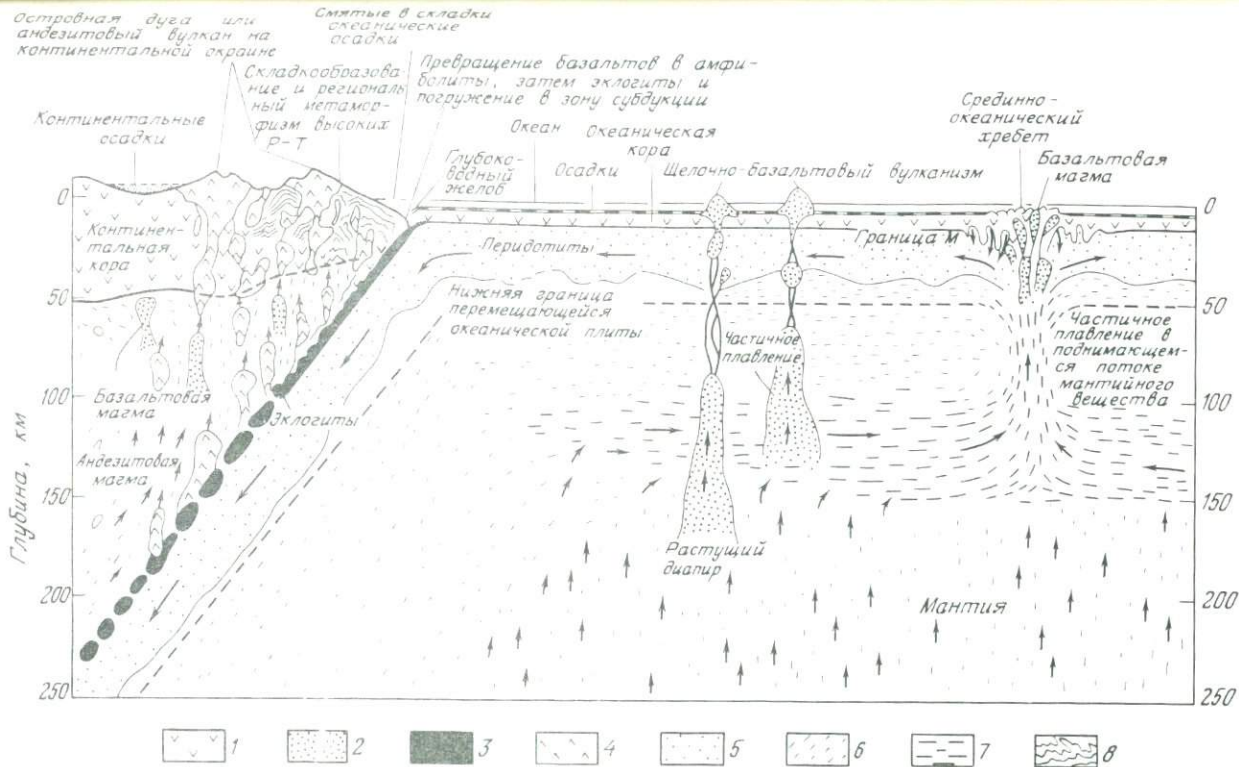 Островная дуга или
андезитовый вулкан на
континентальной окраине
Смятые в складки
океанические
осадки
Складкообразова-
ние и региональ
ный метамор-
физм высоких
Р-Т
Превращение базальтов в амфи-
болиты, затем эклогиты и
погружение в зону субдукции
Континентальные
осадки
Глубоко-
водный
желоб
Океан
Осадки
Океаническая
кора
Щелочно-базальтовый вулканизм
Срединно-
океанический
хребет
Базальтовая
магма
Континен-
тальная
кора
Перидотиты
Граница М
Нижняя граница
перемещающейся
океанической плиты
Частичное
плавление
Частичное
плавление в
поднимающем-
ся потоке
мантийного
вещества
Базальтовая
магма
Эклогиты
Андезитовая
магма
Растущий
диапир
Мантия
Глубина, км
0
50
100
150
200
250
0
50
100
150
200
250
1
2
3
4
5
6
7
8